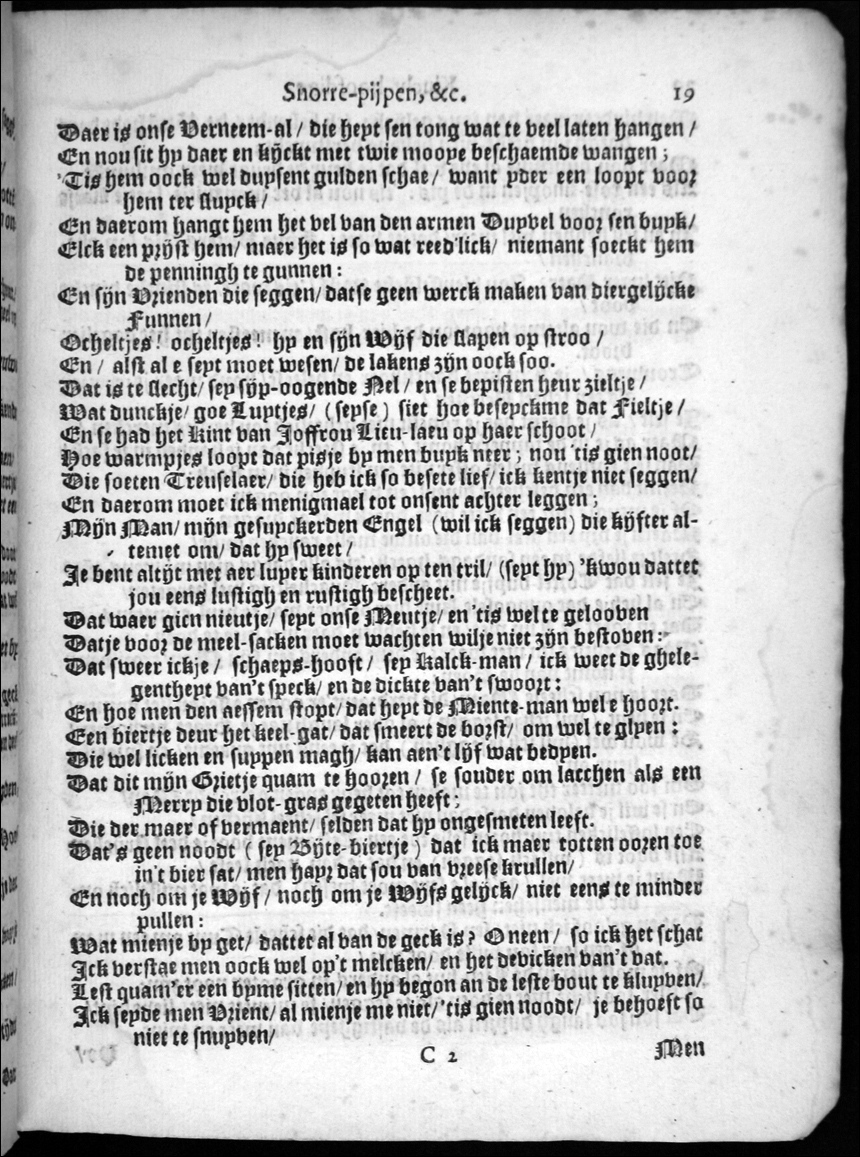 Snorre-pijpen, &c. 19
Daer is onse Verneem-al / die heyt sen tong wat te veel laten hangen /
En nou sit hy daer en kijckt met twie mooye beschaemde wangen ;
'Tis hem oock wel duysent gulden schae / want yder een loopt voor
hem ter sluyck /
En daerom hangt hem het vel van den armen Duyvel voor sen buyk /
Elck een prijst hem / maer het is so wat reed'lick / niemant soeckt hem
de penningh te gunnen :
En sijn Vrienden die seggen / datse geen werck maken van diergelijcke
Funnen /
Ocheltjes ! ocheltjes ! hy en sijn Wijf die slapen op stroo /
En / alst al e seyt moet wesen / de lakens zijn oock soo.
Dat is te slecht / sey sijp-oogende Nel / en se bepisten heur zieltje /
Wat dunckje / goe Luytjes / ( seyse ) siet hoe beseyckme dat Fieltje /
En se had het Kint van Joffrou Lieu-laeu op haer schoot /
Hoe warmpjes loopt dat pisje by men buyk neer ; nou 'tis gien noot /
Die soeten Treuselaer / die heb ick so besete lief / ick kentje niet seggen /
En daerom moet ick menigmael tot onsent achter leggen ;
Mijn Man / mijn gesuyckerden Engel (wil ick seggen) die kijfter al-
temet om / dat hy sweet /
Je bent altijt met aer luyer kinderen op ten tril / (seyt hy) 'kwou dattet
jou eens lustigh en rustigh bescheet.
Dat waer gien nieutje / seyt onse Meutje / en 'tis wel te gelooven
Datje voor de meel-sacken moet wachten wilje niet zijn bestoven :
Dat sweer ickje / schaeps-hooft / sey Kalck-man / ick weet de ghele-
gentheyt van't speck / en de dickte van't swoort :
En hoe men den aessem stopt / dat heyt de Miente-man wel e hoort.
Een biertje deur het keel-gat / dat smeert de borst / om wel te glyen :
Die wel licken en suypen magh / kan aen't lijf wat bedyen.
Dat dit mijn Grietje quam te hooren / se souder om lacchen als een
Merry die vlot-gras gegeten heeft ;
Die der maer of vermaent / selden dat hy ongesmeten leeft.
Dat's geen noodt ( sey Bijte-biertje ) dat ick maer totten ooren toe
in't bier sat / men hayr dat sou van vreese krullen /
En noch om je Wijf / noch om je Wijfs gelijck / niet eens te minder
pullen :
Wat mienje by get / dattet al van de geck is ? O neen / so ick het schat
Ick verstae men oock wel op't melcken / en het devicken van't vat.
Lest quam'er een byme sitten / en hy begon an de leste bout te kluyven /
Ick seyde men Vrient / al mienje me niet / 'tis gien noodt / je behoeft so
niet te snuyven /
C 2 Men